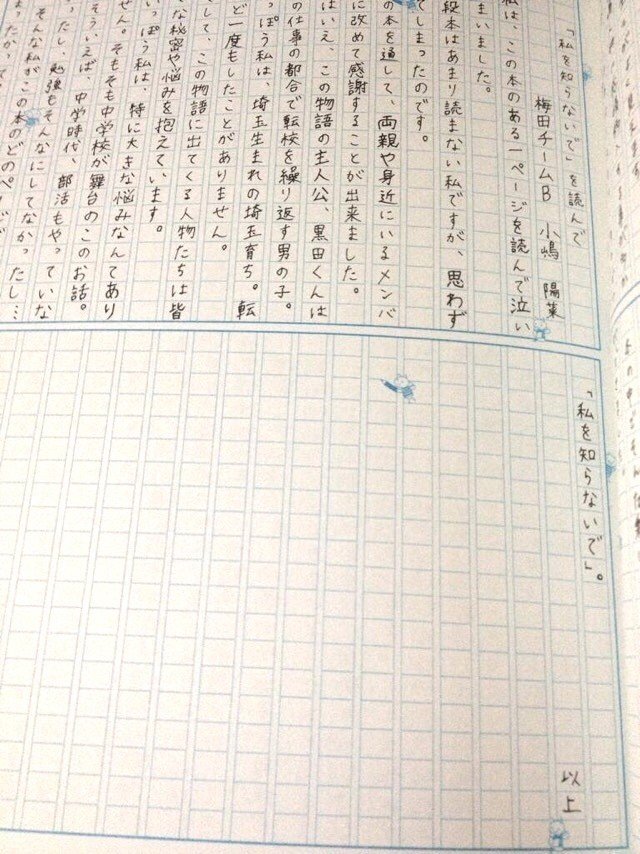 「私を知らないで」を読んで
梅田チームB 小嶋 陽菜
私は、この本のある一ページを読んで泣い
まいました。
段本はあまり読まない私ですが、思わず
てしまったのです。
の本を通して、両親や身近にいるメンバ
に改めて感謝することが出来ました。
はいえ、この物語の主人公、黒田くんは
の仕事の都合で転校を繰り返す男の子。
っぽう私は、埼玉生まれの埼玉育ち。転
ど一度もしたことがありません。
して、この物語に出てくる人物たちは皆
な秘密や悩みを抱えています。
いっぽう私は、特に大きな悩みなんてあり
せん。そもそも中学校が舞台のこのお話。
そういえば、中学時代、部活もやっていな
ったし、勉強もそんなにしてなかったし…
そんな私がこの本のどのページ
「私を知らないで」。
以上